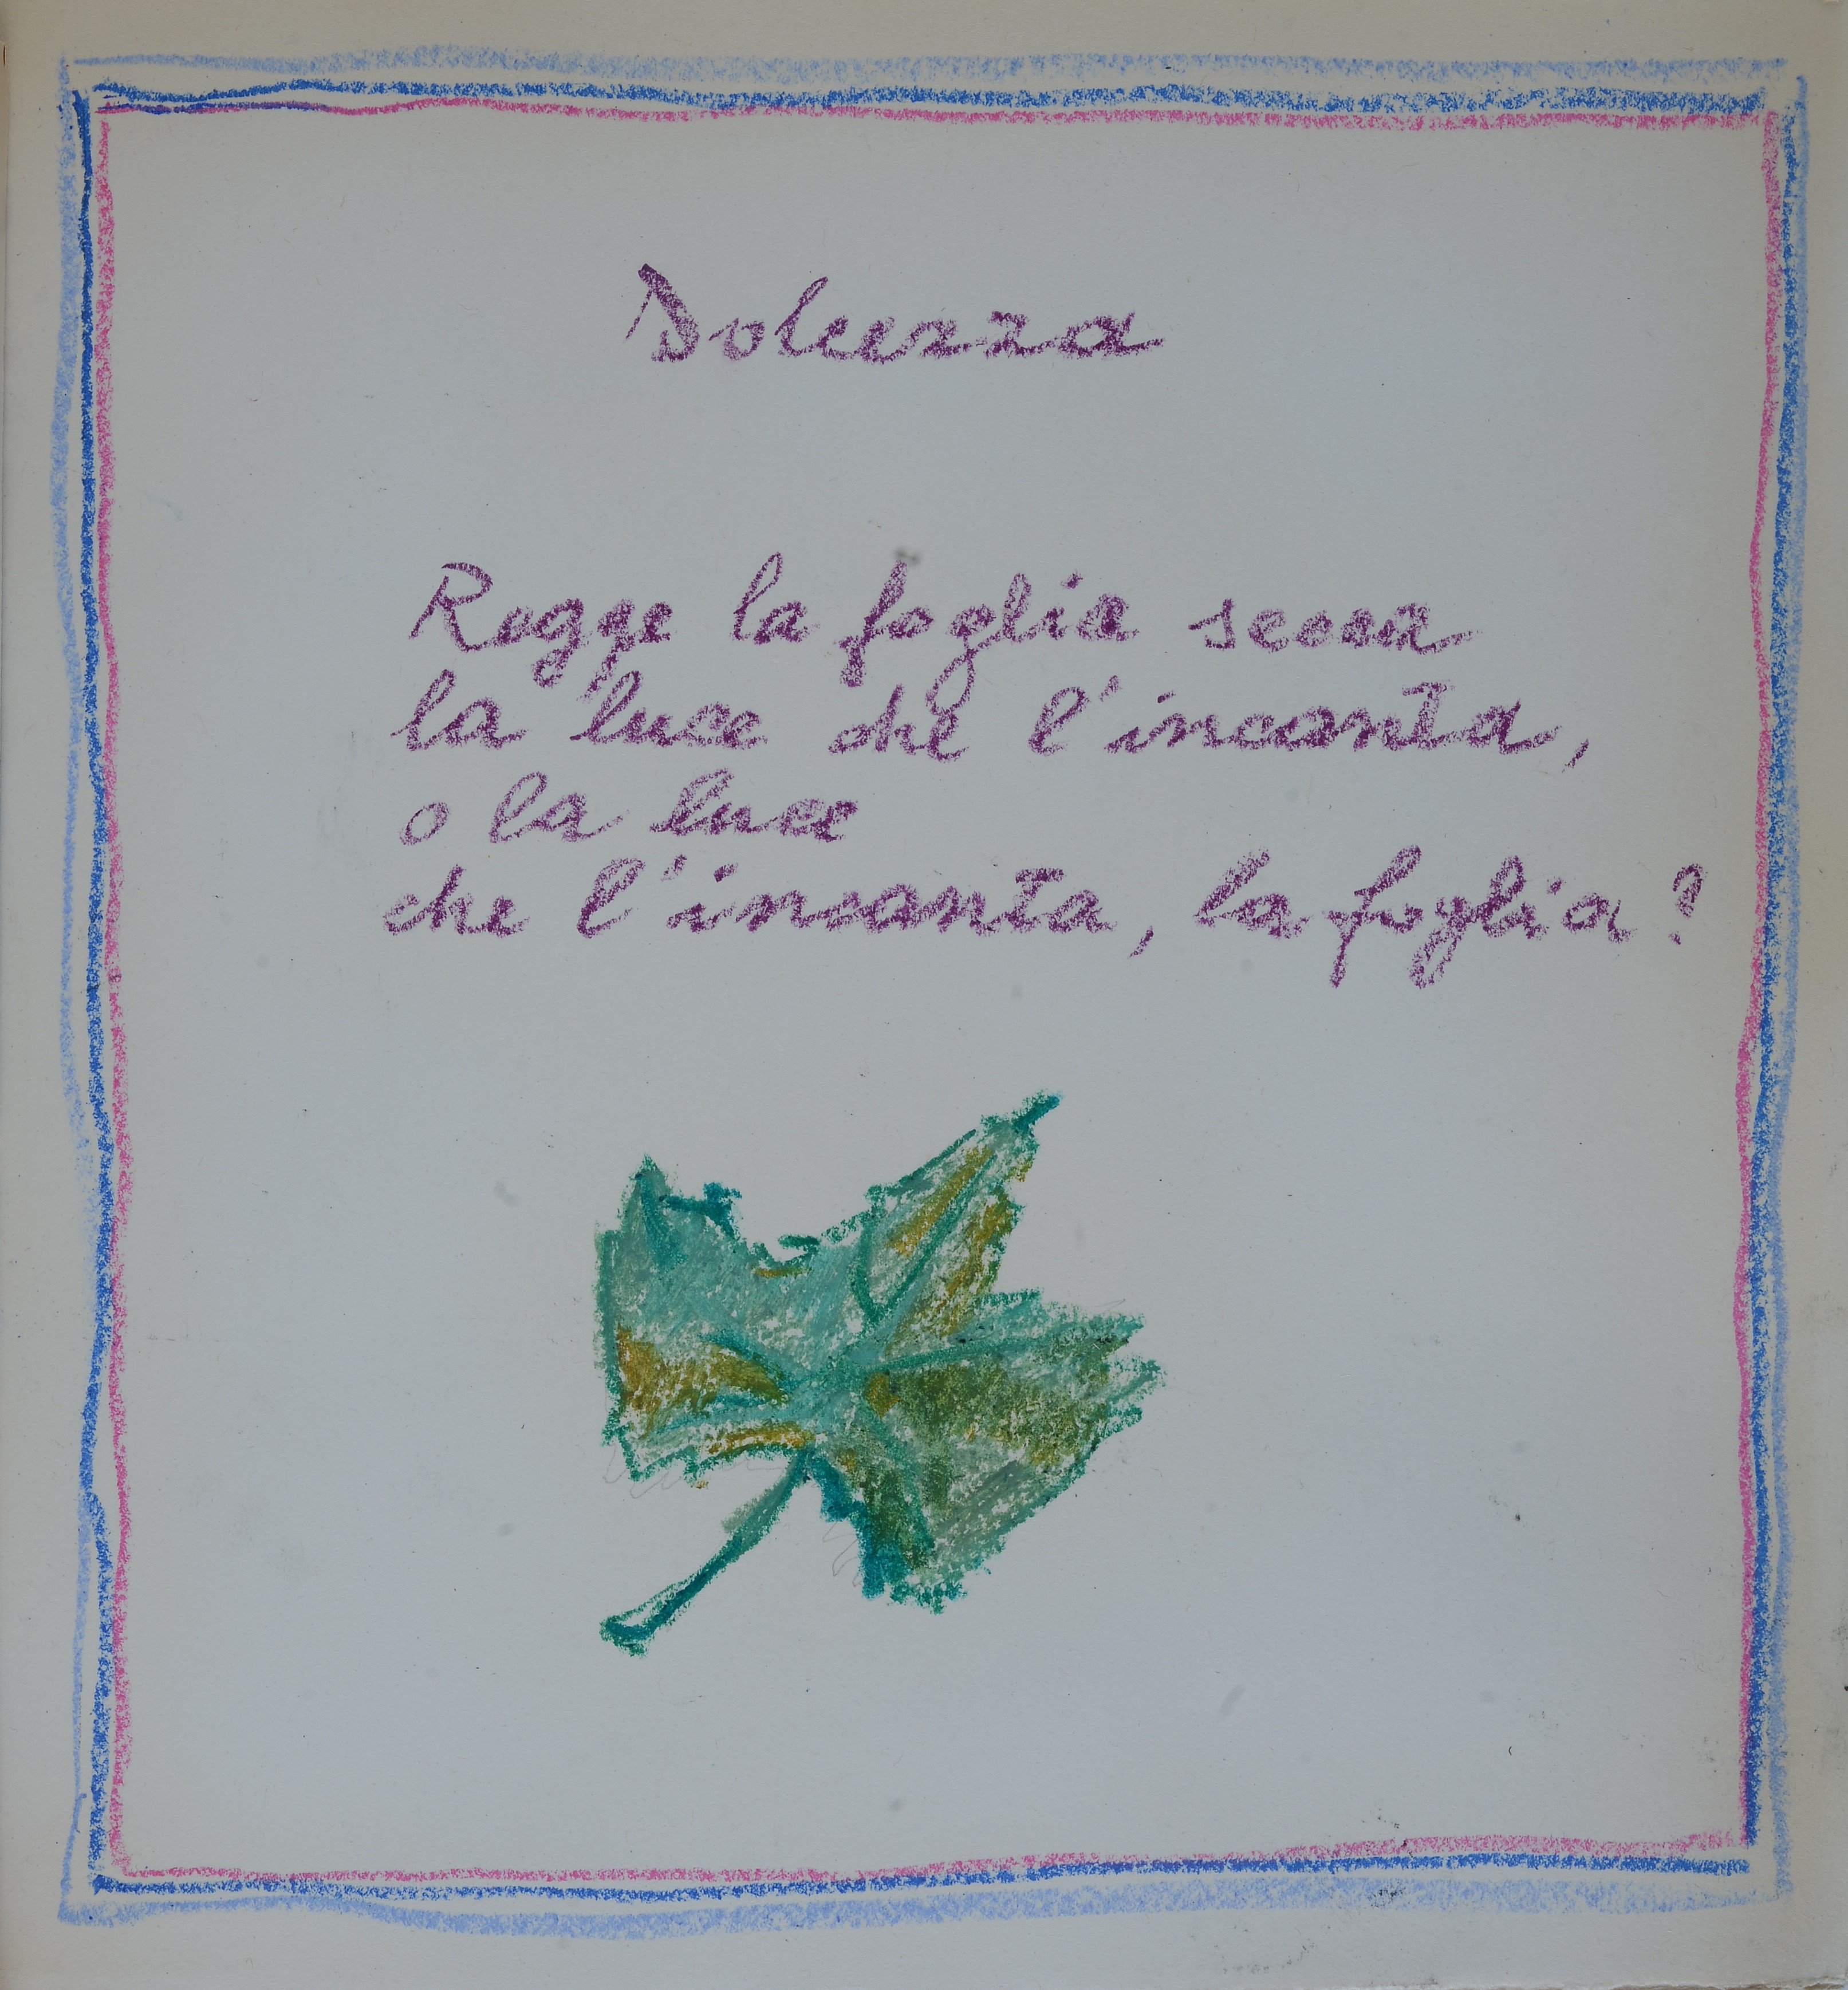 Dolcezza
Regge la foglia secca
la luce che l'incanta,
o la luce
che l'incanta, la foglia?